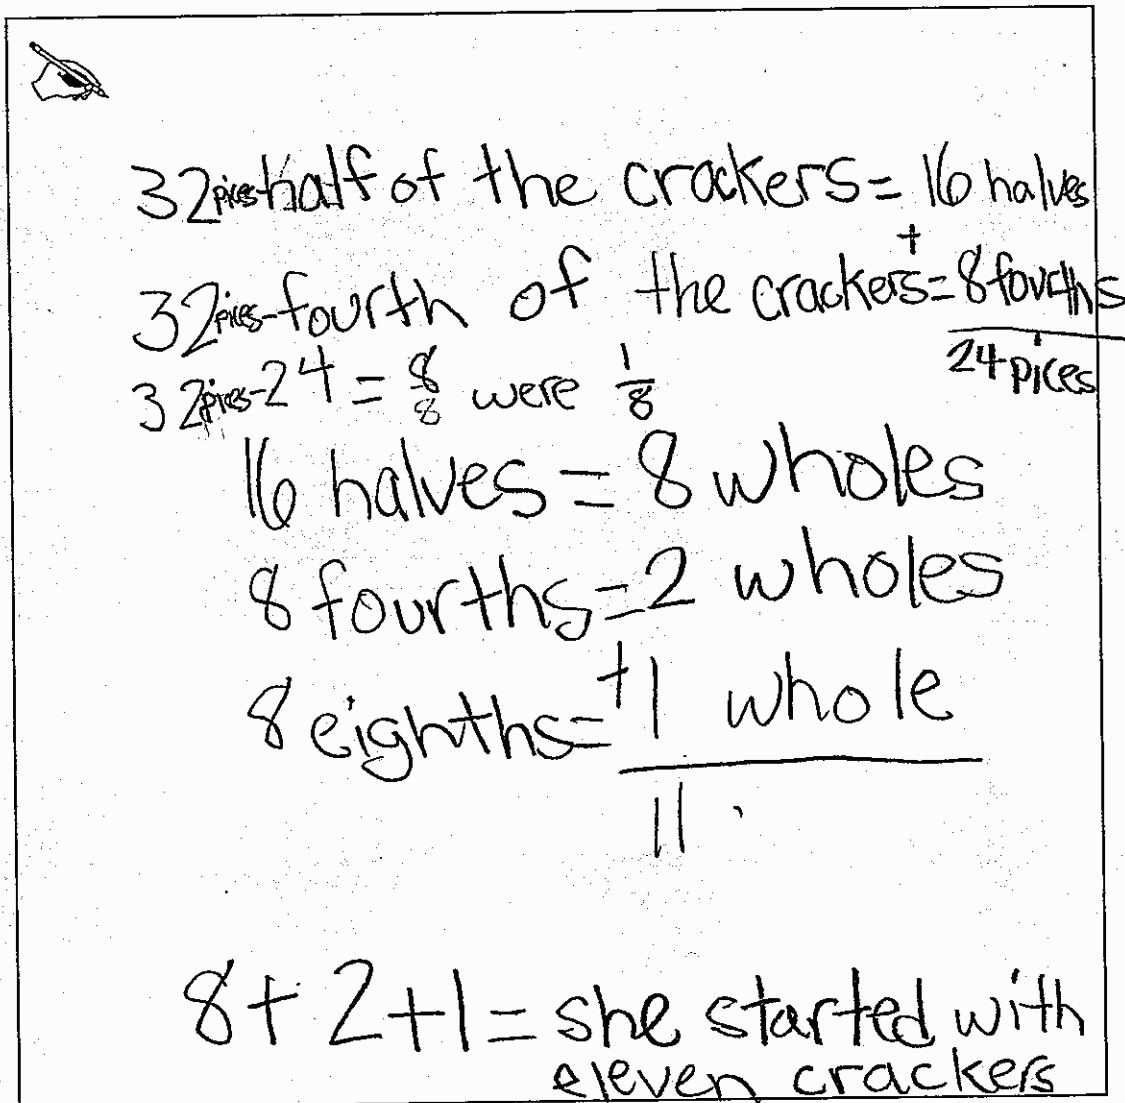 32 pices - half of the crackers = 16 halves
+
32 pices - fourth of the crackers = 8 fourths
24 pices
32 pices - 24 = 8/8 were 1/8
16 halves = 8 wholes
8 fourths = 2 wholes
8 eighths = +1 whole
11
8 + 2 + 1 = she started with
eleven crackers